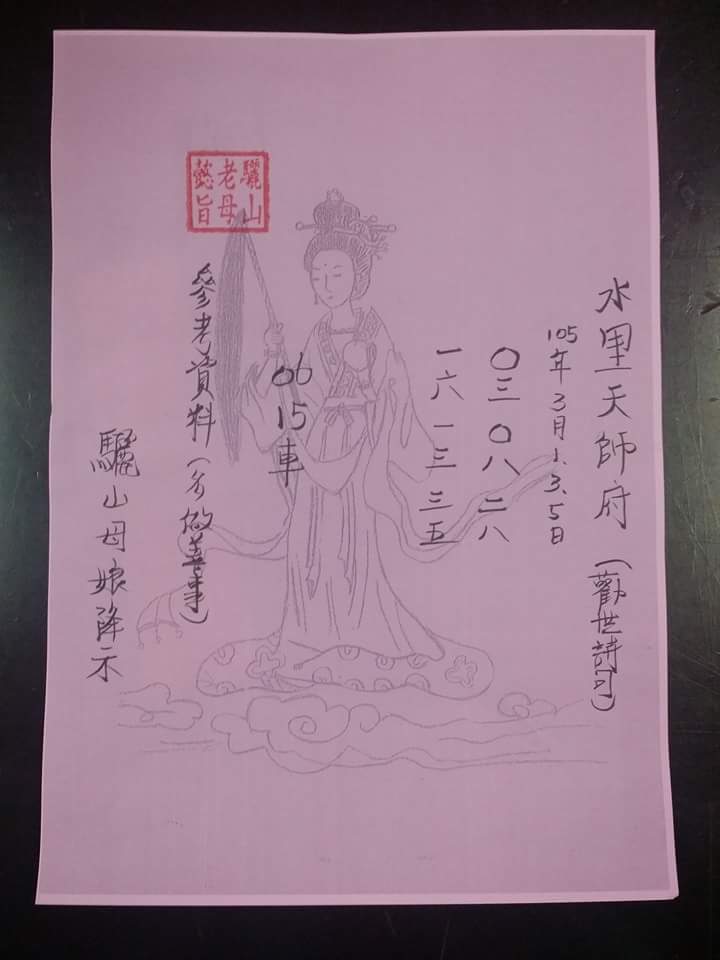 水里天師府(勸世詩句)
105年3月1.3.5日
〇三 〇八 二八
一六 一三 三五
06 15車
參考資料(多做善事)
驪山老母懿旨
驪山母娘降示